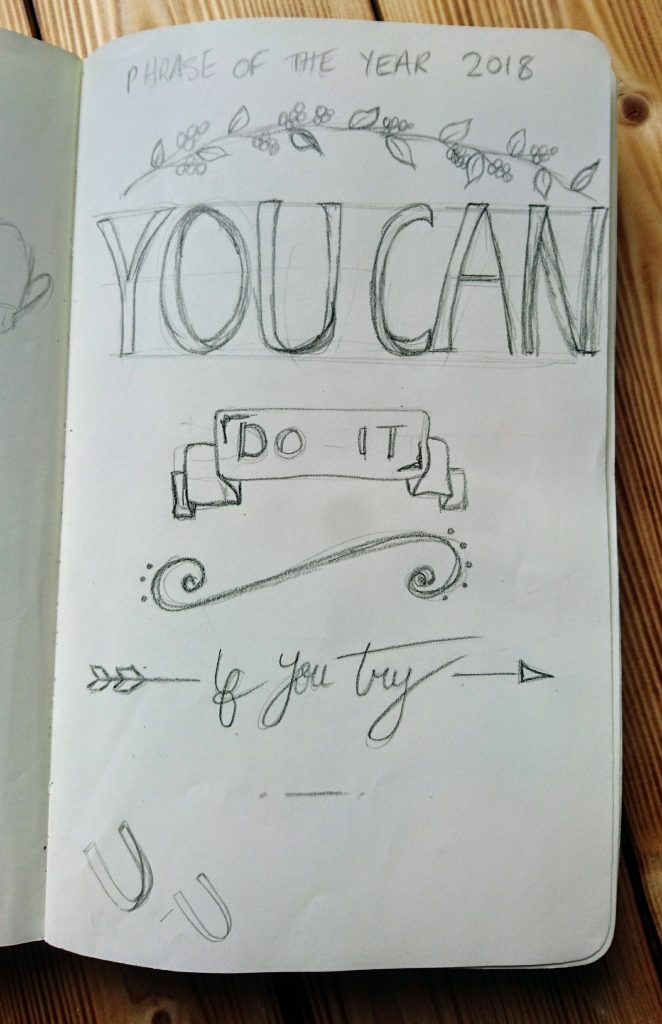 PHRASE OF THE YEAR 2018
YOU CAN
DO IT
If you try
U
U